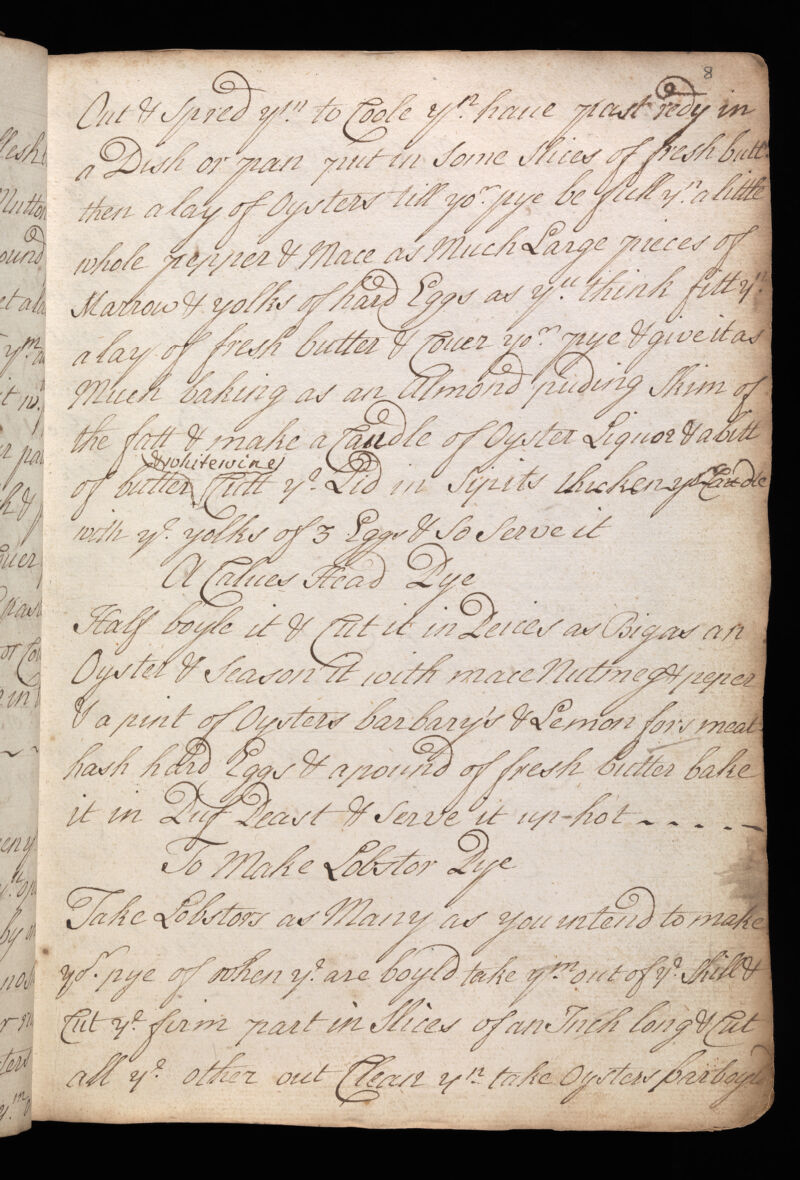 8
Out & Spred ym to Coole yn haue past redy in
a Dish or pan put in Some Slices of fresh butt
then a lay of Oysters till yor pye be full yn a little
whole pepper & Mace as Much Large pieces of
Marrow & yolks of hard Eggs as yu think fitt yn
a lay of fresh butter & Couer yor pye & giue it as
Much baking as an Almond puding Skim of
the fatt & make a Caudle of Oyster Liquor & a bitt
& white wine
of butter Cutt ye Lid in Sipits thicken ye Caudle
with ye yolks of 3 Eggs & So Serve it
A Calues Head Pye
Half boyle it & Cut it in Peices as Big as an
Oyster & Season it with mace Nutmeg & peper
& a pint of Oysters barbary's & Lemon fors meat
hash hard Eggs & a pound of fresh butter bake
it in Puf Peast & Serve it up hot
To Make Lobstor Pye
Take Lobstors as Many as you intend to make
yor pye of when ye are boyld take ym out of ye Shill &
Cut ye firm part in Slices of an Inch long & Cut
all ye other out Clean yn take Oysters parboyld